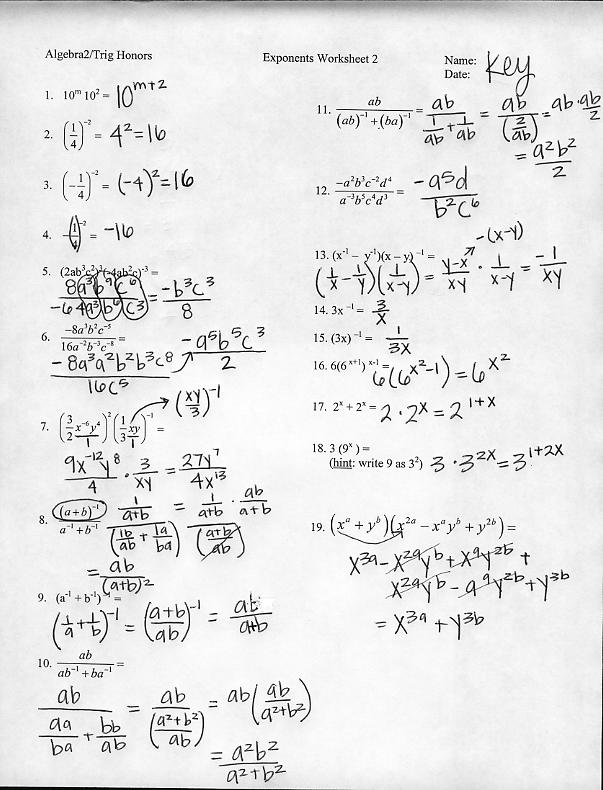 Algebra2/Trig Honors
Exponents Worksheet 2
Name: Key
Date:
1. 10ᵐ 10² = 10^(m+2)
2. (1/4)⁻² = 4² = 16
3. (-1/4)⁻² = (-4)² = 16
4. -(1/4)⁻² = -16
5. (2ab³c²)³(-4ab²c)⁻³ =
8a³b⁹c⁶ / -64a³b⁶c³ = -b³c³ / 8
6. -8a³b²c⁻⁵ / 16a⁻²b⁻³c⁻⁸ =
-8a³a²b²b³c⁸ / 16c⁵ → -a⁵b⁵c³ / 2
7. (3/2 x⁻⁶y⁴)² (1/3 xy)⁻¹ = → (xy/3)⁻¹
9x⁻¹²y⁸ / 4 · 3/xy = 27y⁷ / 4x¹³
8. (a+b)⁻¹ / a⁻¹ + b⁻¹
1/(a+b) / (1b/ab + 1a/ba) = 1/(a+b) / ((a+b)/ab) · ab/(a+b)
= ab / (a+b)²
9. (a⁻¹ + b⁻¹)⁻¹ =
(1/a + 1/b)⁻¹ = ((a+b)/ab)⁻¹ = ab / a+b
10. ab / ab⁻¹ + ba⁻¹ =
ab / (aa/ba + bb/ab) = ab / ((a²+b²)/ab) = ab (ab / a²+b²)
= a²b² / a²+b²
11. ab / (ab)⁻¹ + (ba)⁻¹ = ab / (1/ab + 1/ab) = ab / (2/ab) = ab · ab/2
= a²b² / 2
12. -a²b³c⁻²d⁴ / a⁻³b⁵c⁴d³ = -a⁵d / b²c⁶
13. (x⁻¹ - y⁻¹)(x – y)⁻¹ = -(x-y)
(1/x - 1/y)(1/(x-y)) = y-x / xy · 1/(x-y) = -1/xy
14. 3x⁻¹ = 3/x
15. (3x)⁻¹ = 1/3x
16. 6(6^(x+1))^(x-1) = 6(6^(x²-1)) = 6^(x²)
17. 2ˣ + 2ˣ = 2 · 2ˣ = 2^(1+x)
18. 3 (9ˣ) =
(hint: write 9 as 3²) 3 · 3^(2x) = 3^(1+2x)
19. (xᵃ + yᵇ)(x²ᵃ - xᵃyᵇ + y²ᵇ) =
x³ᵃ - x²ᵃyᵇ + xᵃy²ᵇ +
x²ᵃyᵇ - aᵃy²ᵇ + y³ᵇ
= x³ᵃ + y³ᵇ